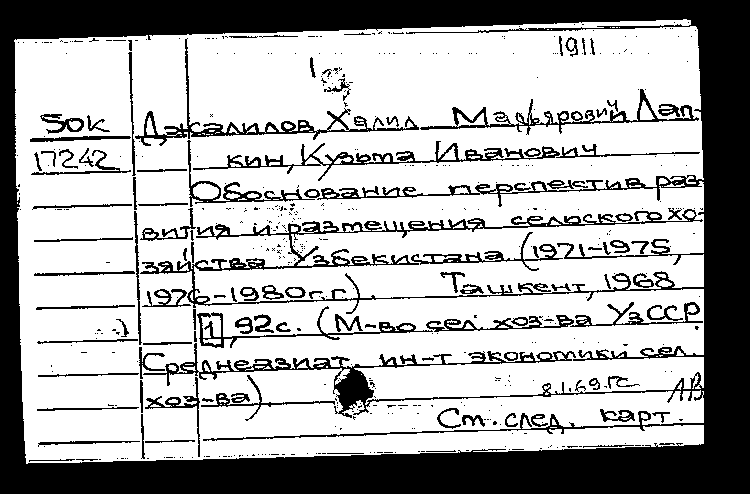 1911
50к Джалилов, Халил Мадьярович Лап-
17242 кин, Кузьма Иванович
Обоснование перспектив раз-
вития и размещения сельского хо-
зяйства Узбекистана (1971-1975,
1976-1980г.г.). Ташкент, 1968
1, 92с. (М-во сел. хоз-ва УзССР
Среднеазиат. ин-т экономики сел.
хоз-ва). 8.1.69.гс АВ
См. след. карт.